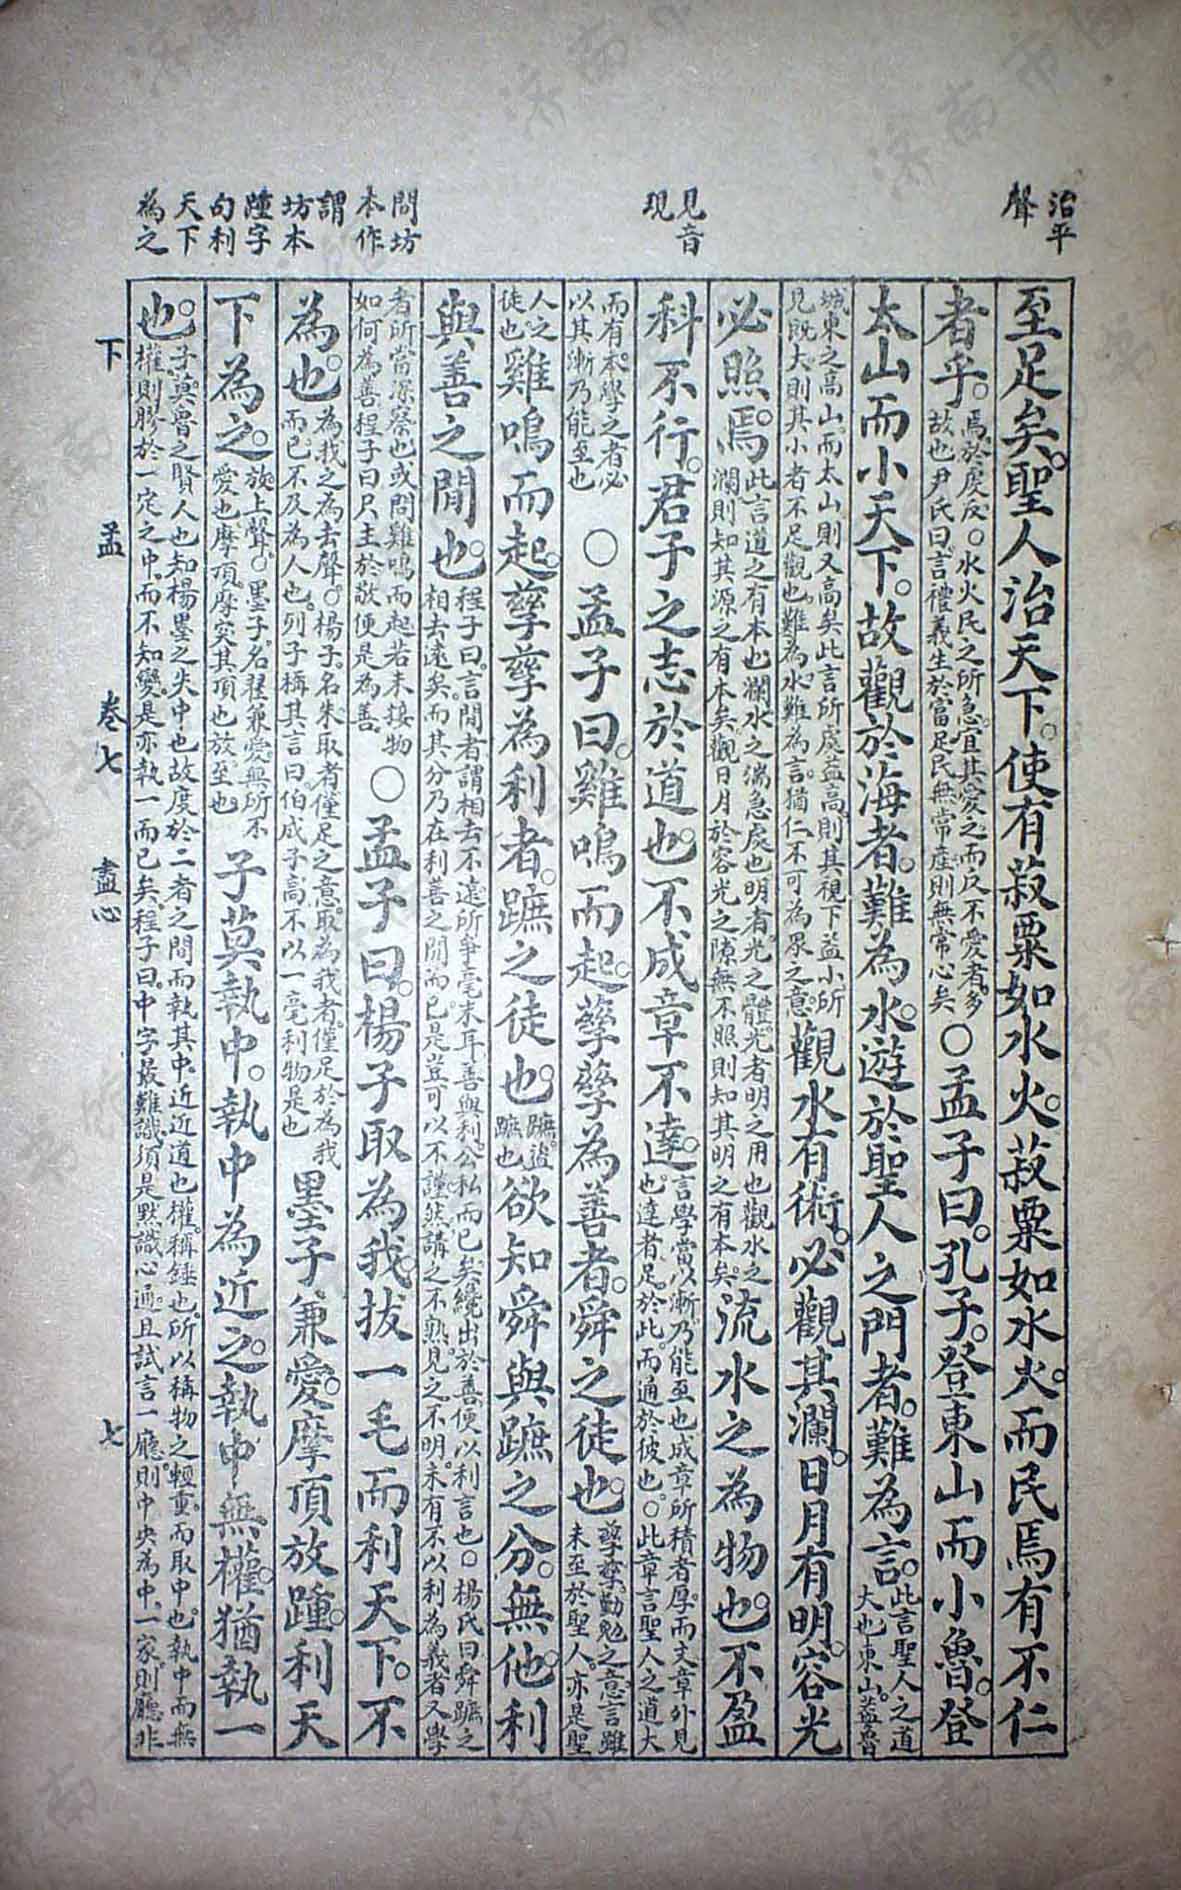 治平
聲
見音
現
問坊
本作
謂
坊本
踵字
句利
天下
為之
至足矣。聖人治天下。使有菽粟如水火。菽粟如水火。而民焉有不仁
者乎。焉於虔反。○水火民之所急。宜其愛之而反不愛者。多故也尹氏曰。言禮義生於富足民無常產則無常心矣○孟子曰。孔子。登東山而小魯。登
太山而小天下。故觀於海者。難為水。遊於聖人之門者。難為言。此言聖人之道大也東山。蓋魯
城東之高山。而太山則又高矣此言所處益高。則其視下益小所見既大則其小者不足觀也。難為水。難為言。猶仁不可為眾之意。觀水有術。必觀其瀾。日月有明。容光
必照焉。此言道之有本也瀾水之湍急處也明者。光之體。光者明之用也觀水之瀾則知其源之有本矣。觀日月於容光之隙無不照則知其明之有本矣。流水之為物也。不盈
科不行。君子之志於道也。不成章不達。言學當以漸。乃能至也成章所積者厚。而文章外見也。達者足。於此。而通於彼也。○此章言聖人之道大
而有本。學之者必以其漸乃能至也○孟子曰。雞鳴而起。孳孳為善者。舜之徒也。孳孳勤勉之意言雖未至於聖人。亦是聖
人之徒也。雞鳴而起。孳孳為利者。蹠之徒也。蹠。盜蹠也欲知舜與蹠之分。無他。利
與善之閒也。程子曰。言閒者謂相去不遠所爭毫末耳。善與利。公私而已矣。纔出於善便以利言也。○楊氏曰舜蹠之相去遠矣。而其分乃在利善之閒而已。是豈可以不謹。然講之不熟。見之不明。未有不以利為義者又學
者所當深察也或問雞鳴而起若未接物如何為善程子曰只主於敬便是為善。○孟子曰。楊子取為我。拔一毛而利天下。不
為也。為我之為去聲。○楊子。名朱取者僅足之意。取為我者。僅足於為我而已。不及為人也。列子稱其言曰。伯成子高不以一毫利物是也墨子兼愛。摩頂放踵。利天
下為之。放。上聲。○墨子。名翟兼愛無所不愛也摩頂。摩突其頂也放。至也子莫執中。執中為近之。執中無權。猶執一
也。子莫。魯之賢人也知楊墨之失中也故度於二者之間而執其中。近近道也權。稱錘也。所以稱物之輕重。而取中也。執中而無權則膠於一定之中。而不知變。是亦執一而已矣。程子曰。中字最難識須是默識心通。且試言一廳。則中央為中。一家則廳非
下 孟 卷七 盡心 七